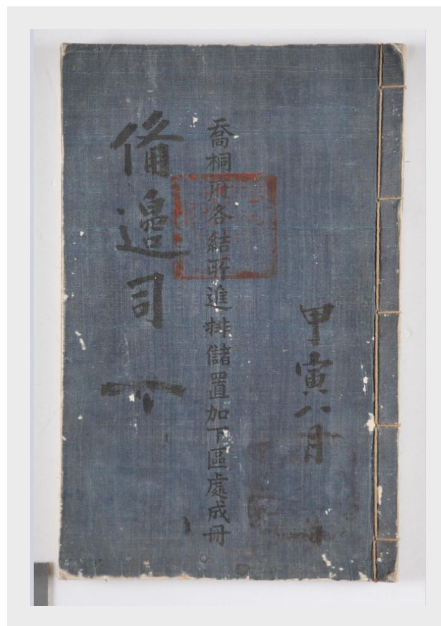 甲寅八月
喬桐府各結所進排儲置加下區處成冊
備邊司 下